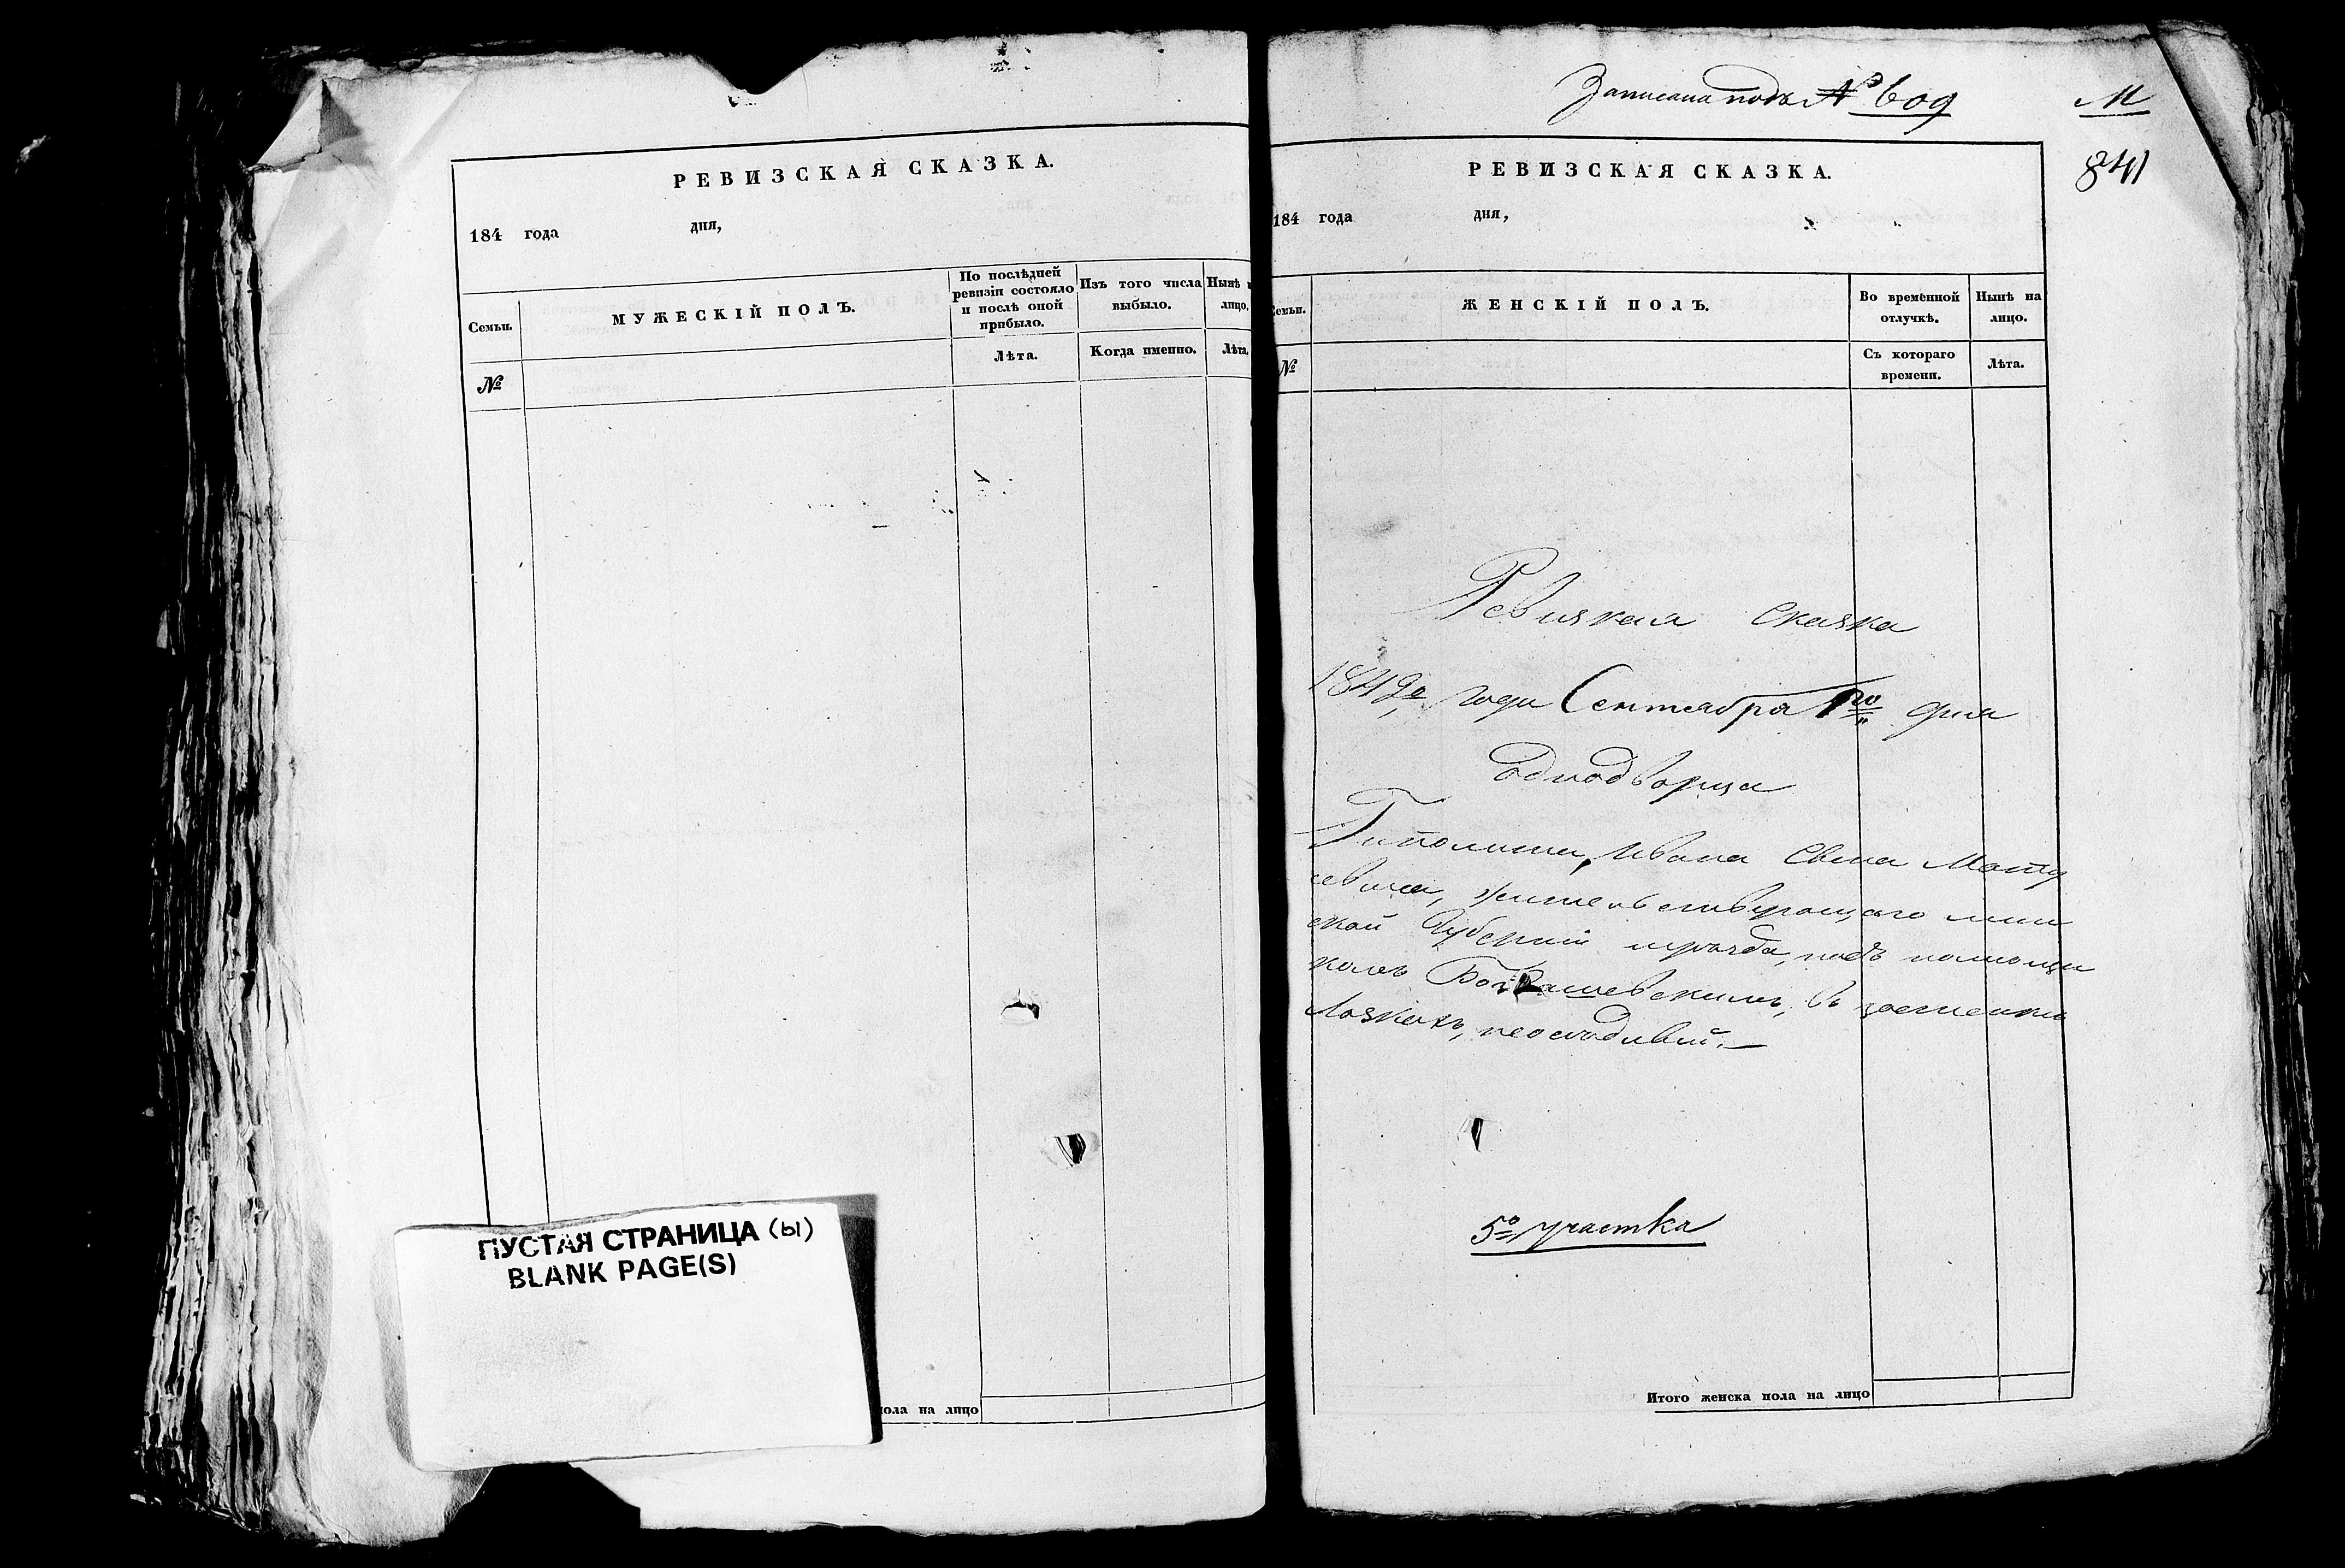 РЕВИЗСКАЯ СКАЗКА.
184 года дня,
Семьи.
МУЖЕСКІЙ ПОЛЪ.
По послѣдней
ревизіи состояло
и послѣ оной
прибыло.
Изъ того числа
выбыло.
Нынѣ
лицо.
№
Лѣта.
Когда именно.
Лѣта.
ПУСТАЯ СТРАНИЦА (ы)
BLANK PAGE(S)
пола на лицо
Записана подъ № 609
М
841
РЕВИЗСКАЯ СКАЗКА.
184 года дня,
Семьи.
ЖЕНСКІЙ ПОЛЪ.
Во временной
отлучкѣ.
Нынѣ на
лицо.
№
Съ котораго
времени.
Лѣта.
Ревизкая Сказка
года Сентября 1го дня
Однодворца
Гиполита, Ивана Сына Мату
севича, жительствующаго мин
ской Губерніи
въ застенкѣ
5го участка
Итого женска пола на лицо